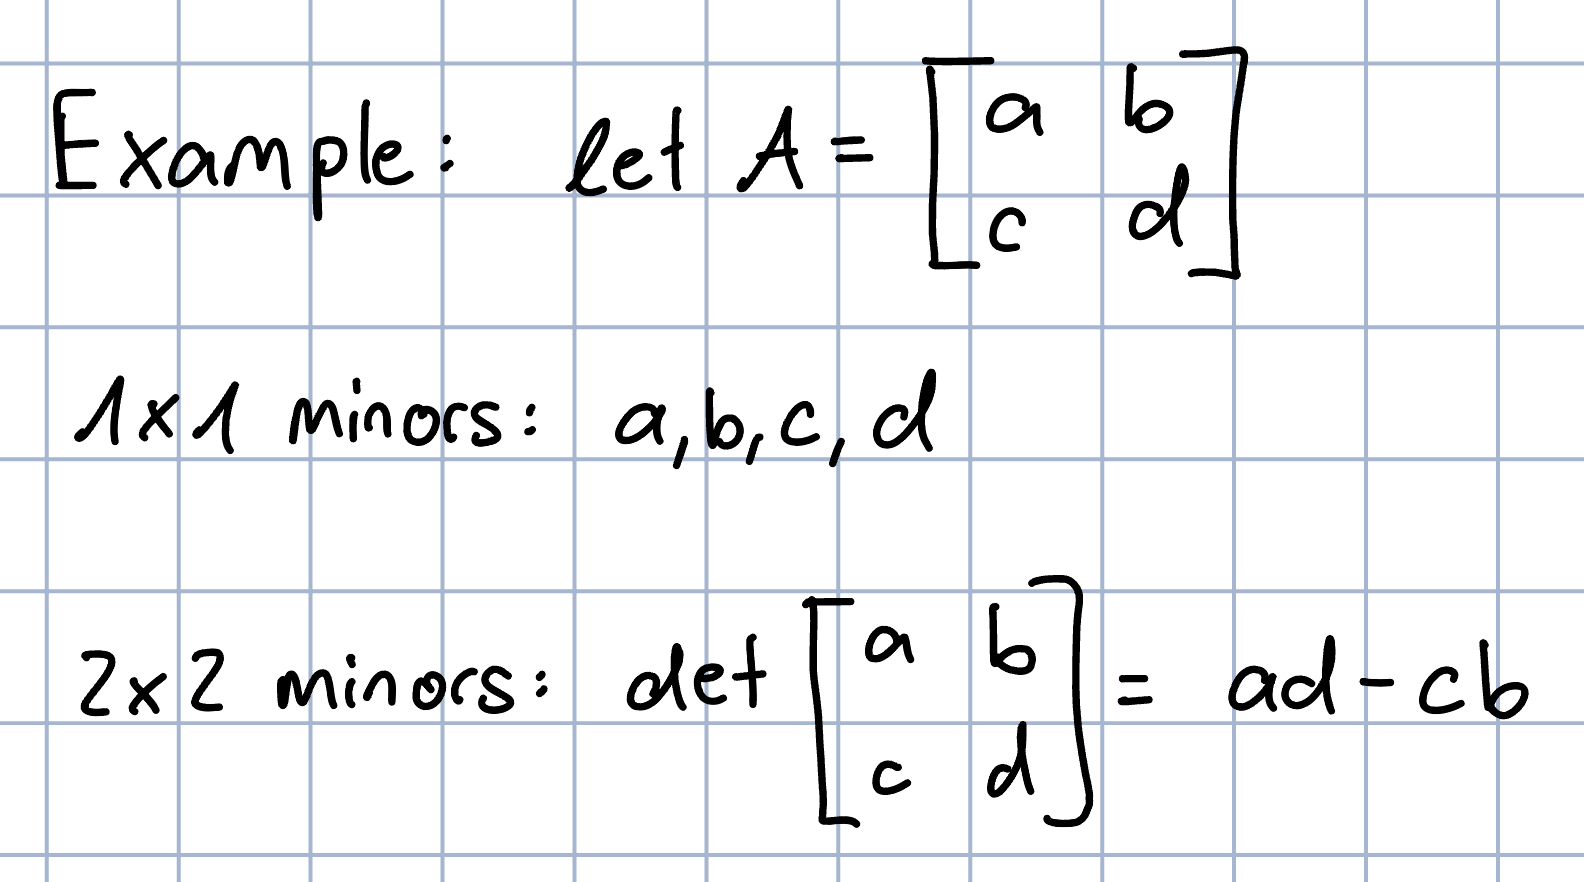 Example: let A = [a b
c d]
1x1 minors: a,b,c,d
2x2 minors: det [a b
c d] = ad - cb